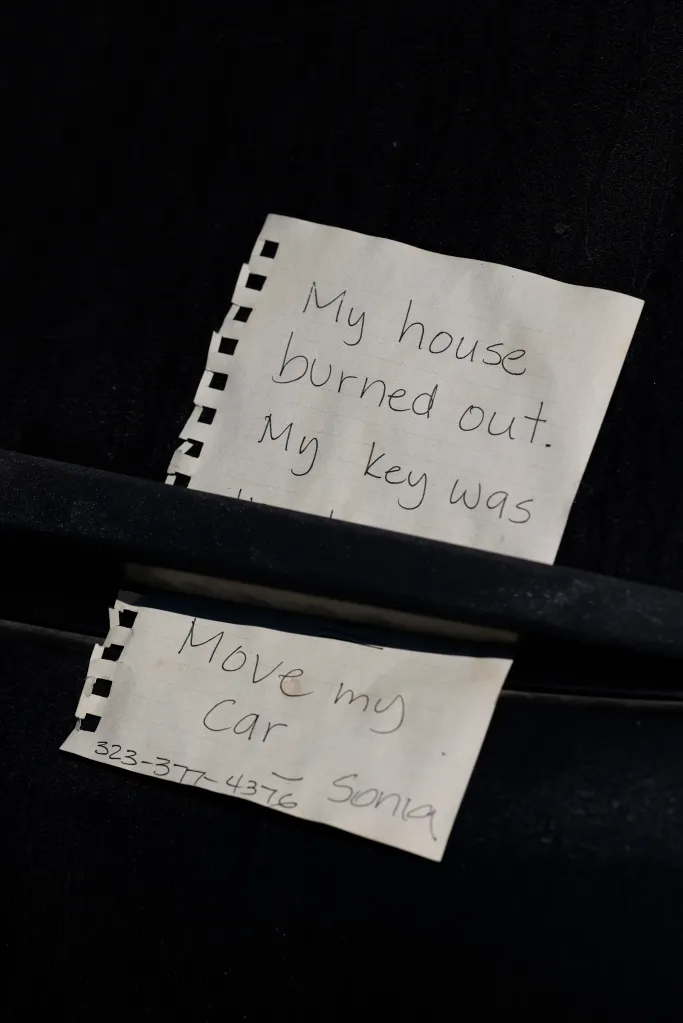 My house
burned out.
My key was
Move my
car
323-377-4376 – Sonia